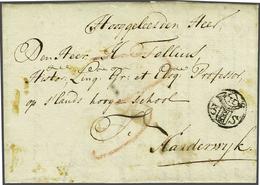 Hooggeleerden Heer,
Den Heer H. Tollius
Histor. Ling. Gr. et Eloq. Professor,
op 's Lands hooge school
Te
Harderwyk